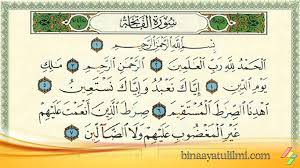 سُورَةُ الفَاتِحَةِ
بِسْمِ اللَّهِ الرَّحْمَٰنِ الرَّحِيمِ ۝١
الْحَمْدُ لِلَّهِ رَبِّ الْعَالَمِينَ ۝٢ الرَّحْمَٰنِ الرَّحِيمِ ۝٣ مَالِكِ
يَوْمِ الدِّينِ ۝٤ إِيَّاكَ نَعْبُدُ وَإِيَّاكَ نَسْتَعِينُ ۝٥
اهْدِنَا الصِّرَاطَ الْمُسْتَقِيمَ ۝٦ صِرَاطَ الَّذِينَ أَنْعَمْتَ عَلَيْهِمْ
غَيْرِ الْمَغْضُوبِ عَلَيْهِمْ وَلَا الضَّالِّينَ ۝٧
www.binaayatulilmi.com